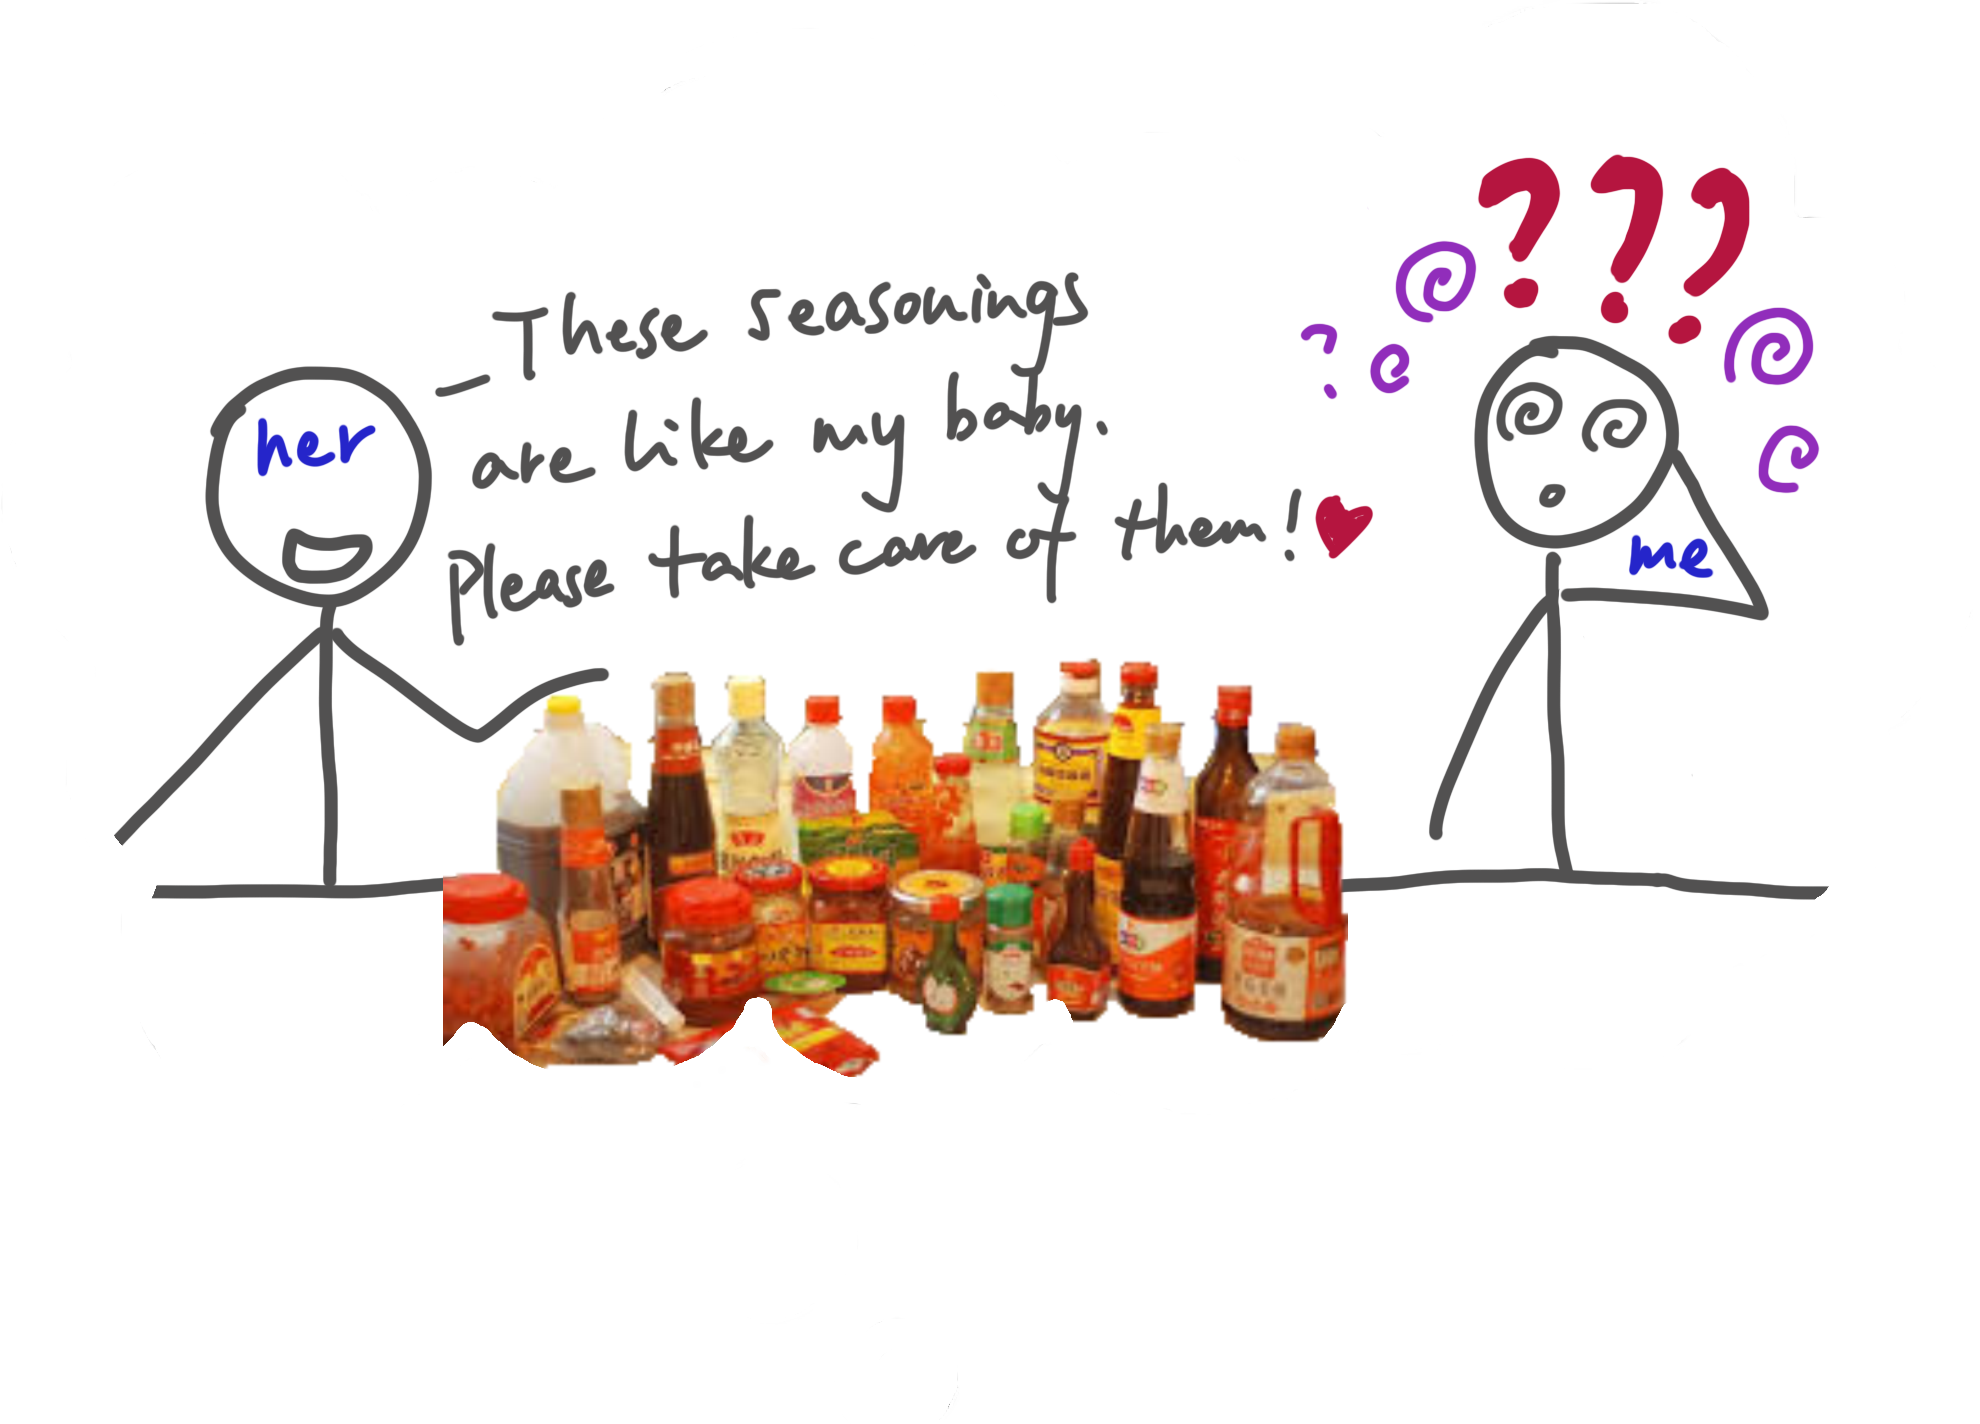 her
These seasonings
are like my baby.
Please take care of them!
???
?
me